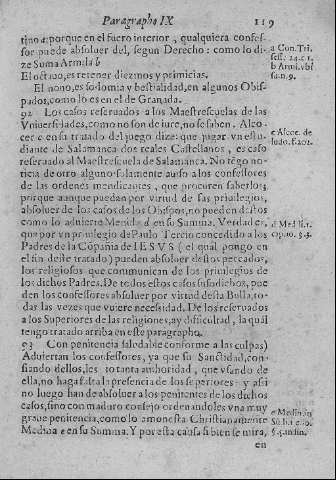 Paragrapho IX 119
tino a: porque en el fuero interior, qualquiera confes-
sor puede absoluer del, segun Derecho: como lo di-
ze Suma Armila b
El octauo, es retener diezmos y primicias.
El nono, es sodomia y bestialidad, en algunos Obis-
pados, como lo es en el de Granada.
92 Los casos reseruados a los Maestrescuelas de las
Vniuersidades, como no son de iure, no se saben. Alco-
cer c en su tratado del juego dize: que jugar vn estu-
diante de Salamanca dos reales Castellanos, es caso
reseruado al Maestrescuela de Salamanca. No tẽgo no-
ticia de otro alguno: solamente auiso a los confessores
de las ordenes mendicantes, que procuren saberlos;
porque aunque puedan por virtud de sus priuilegios,
absoluer de los casos de los Obispos, no pueden destos
como lo aduierte Medina d en su Suma. Verdad es
que por vn priuilegio de Paulo Tercio concedido a los
Padres de la Cõpañia de IESVS (el qual pongo en
el fin deste tratado) pueden absoluer destos pecados,
los religiosos que communican de los priuilegios de
los dichos Padres. De todos estos casos susodichos, pue
den los confessores absoluer por virtud desta Bulla, to-
das las vezes que vuiere necessidad. De los reseruados
a los Superiores de las religiones, ay difficultad, la qual
tengo tratado arriba en este paragrapho.
93 Con penitencia saludable conforme a las culpas)
Aduiertan los confessores, ya que su Sanctidad, con-
fiando dellos, les
to tanta authoridad, que vsando de
ella, no haga falta la presencia de los superiores: y assi
no luego han de absoluer a los penitentes de los dichos
casos, sino con maduro consejo ordenandoles vna muy
graue penitencia, como lo amonesta Christianamente
Medina e en su Suma. Y por esta causa si bien se mira,
en
a Con. Tri.
sess. 24. c.
b Armi. vbi
sa. n. 9.
c Alcoc. de
ludo. f. 202.
d Med. li. 1.
e Medin. in